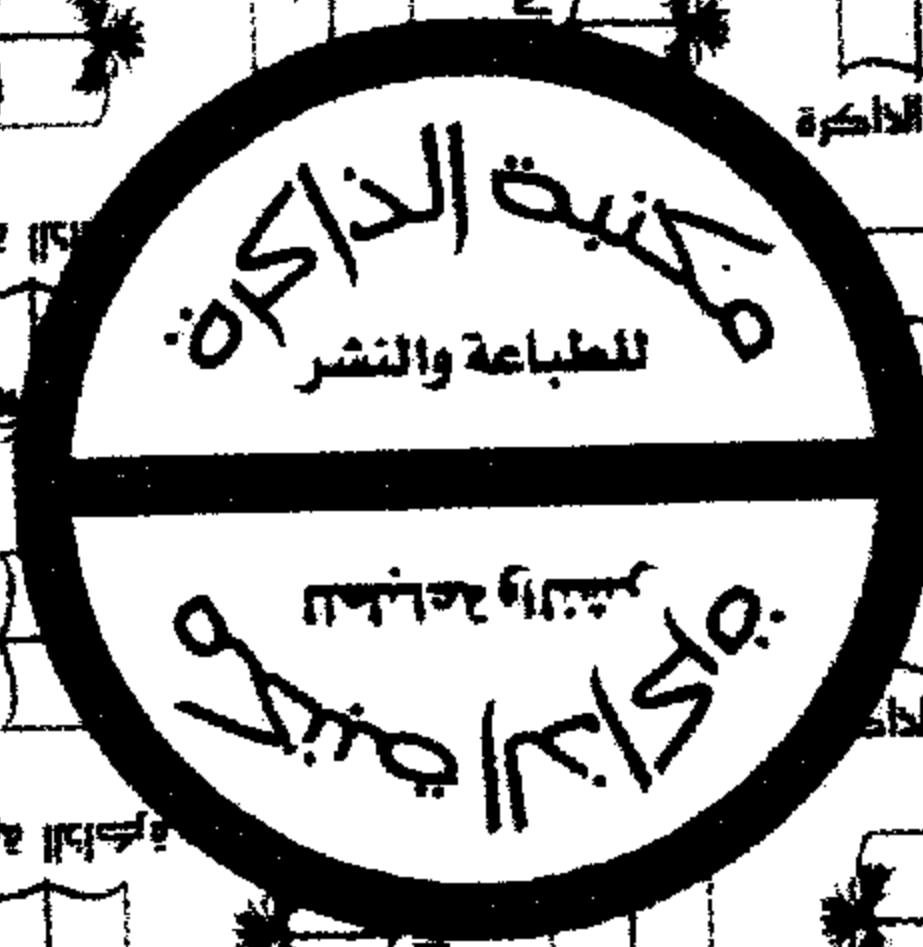 مكتبة الذاكرة
للطباعة والنشر
للطباعة والنشر
مكتبة الذاكرة
الذاكرة
الذاكرة